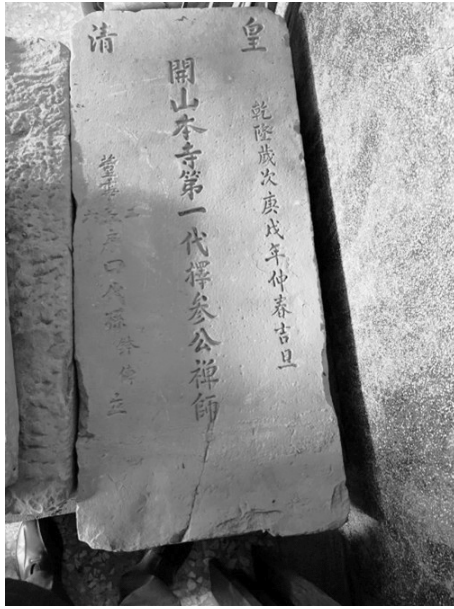 皇清
乾隆歲次庚戌年仲春吉旦
開山本寺第一代擇參公禅師
代孫 立